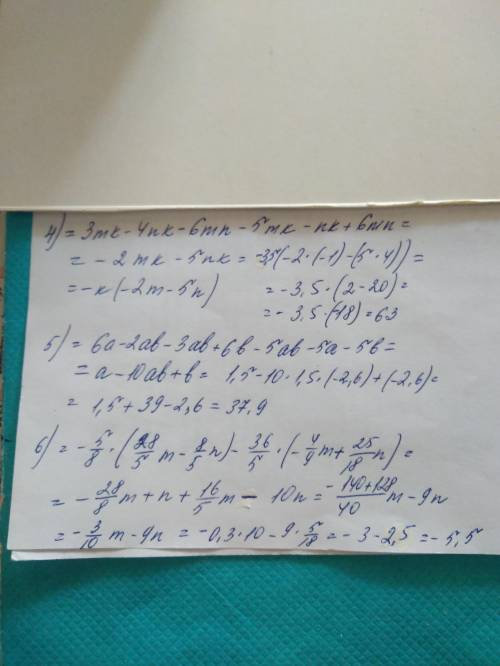 4) = 3mk - 4nk - 6mn - 5mk - nk + 6mn =
= - 2mk - 5nk = -3,5(-2·(-1) - (5·4)) =
= -k(-2m - 5n) = -3,5·(2-20) =
= -3,5·(-18) = 63
5) = 6a - 2ab - 3ab + 6b - 5ab - 5a - 5b =
= a - 10ab + b = 1,5 - 10·1,5·(-2,6) + (-2,6) =
= 1,5 + 39 - 2,6 = 37,9
6) = - 5/8 · (28/5 m - 8/5 n) - 36/5 · (- 4/9 m + 25/18 n) =
= - 28/8 m + n + 16/5 m - 10n = (-140+128)/40 m - 9n
= - 3/10 m - 9n = -0,3·10 - 9· 5/18 = -3 - 2,5 = -5,5